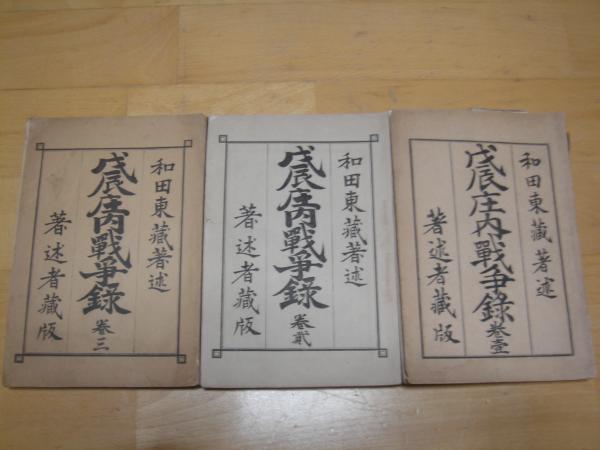 和田東藏著述
戊辰庄内戰爭錄 卷壹
著述者藏版
和田東藏著述
戊辰庄内戰爭錄 卷貳
著述者藏版
和田東藏著述
戊辰庄内戰爭錄 卷三
著述者藏版